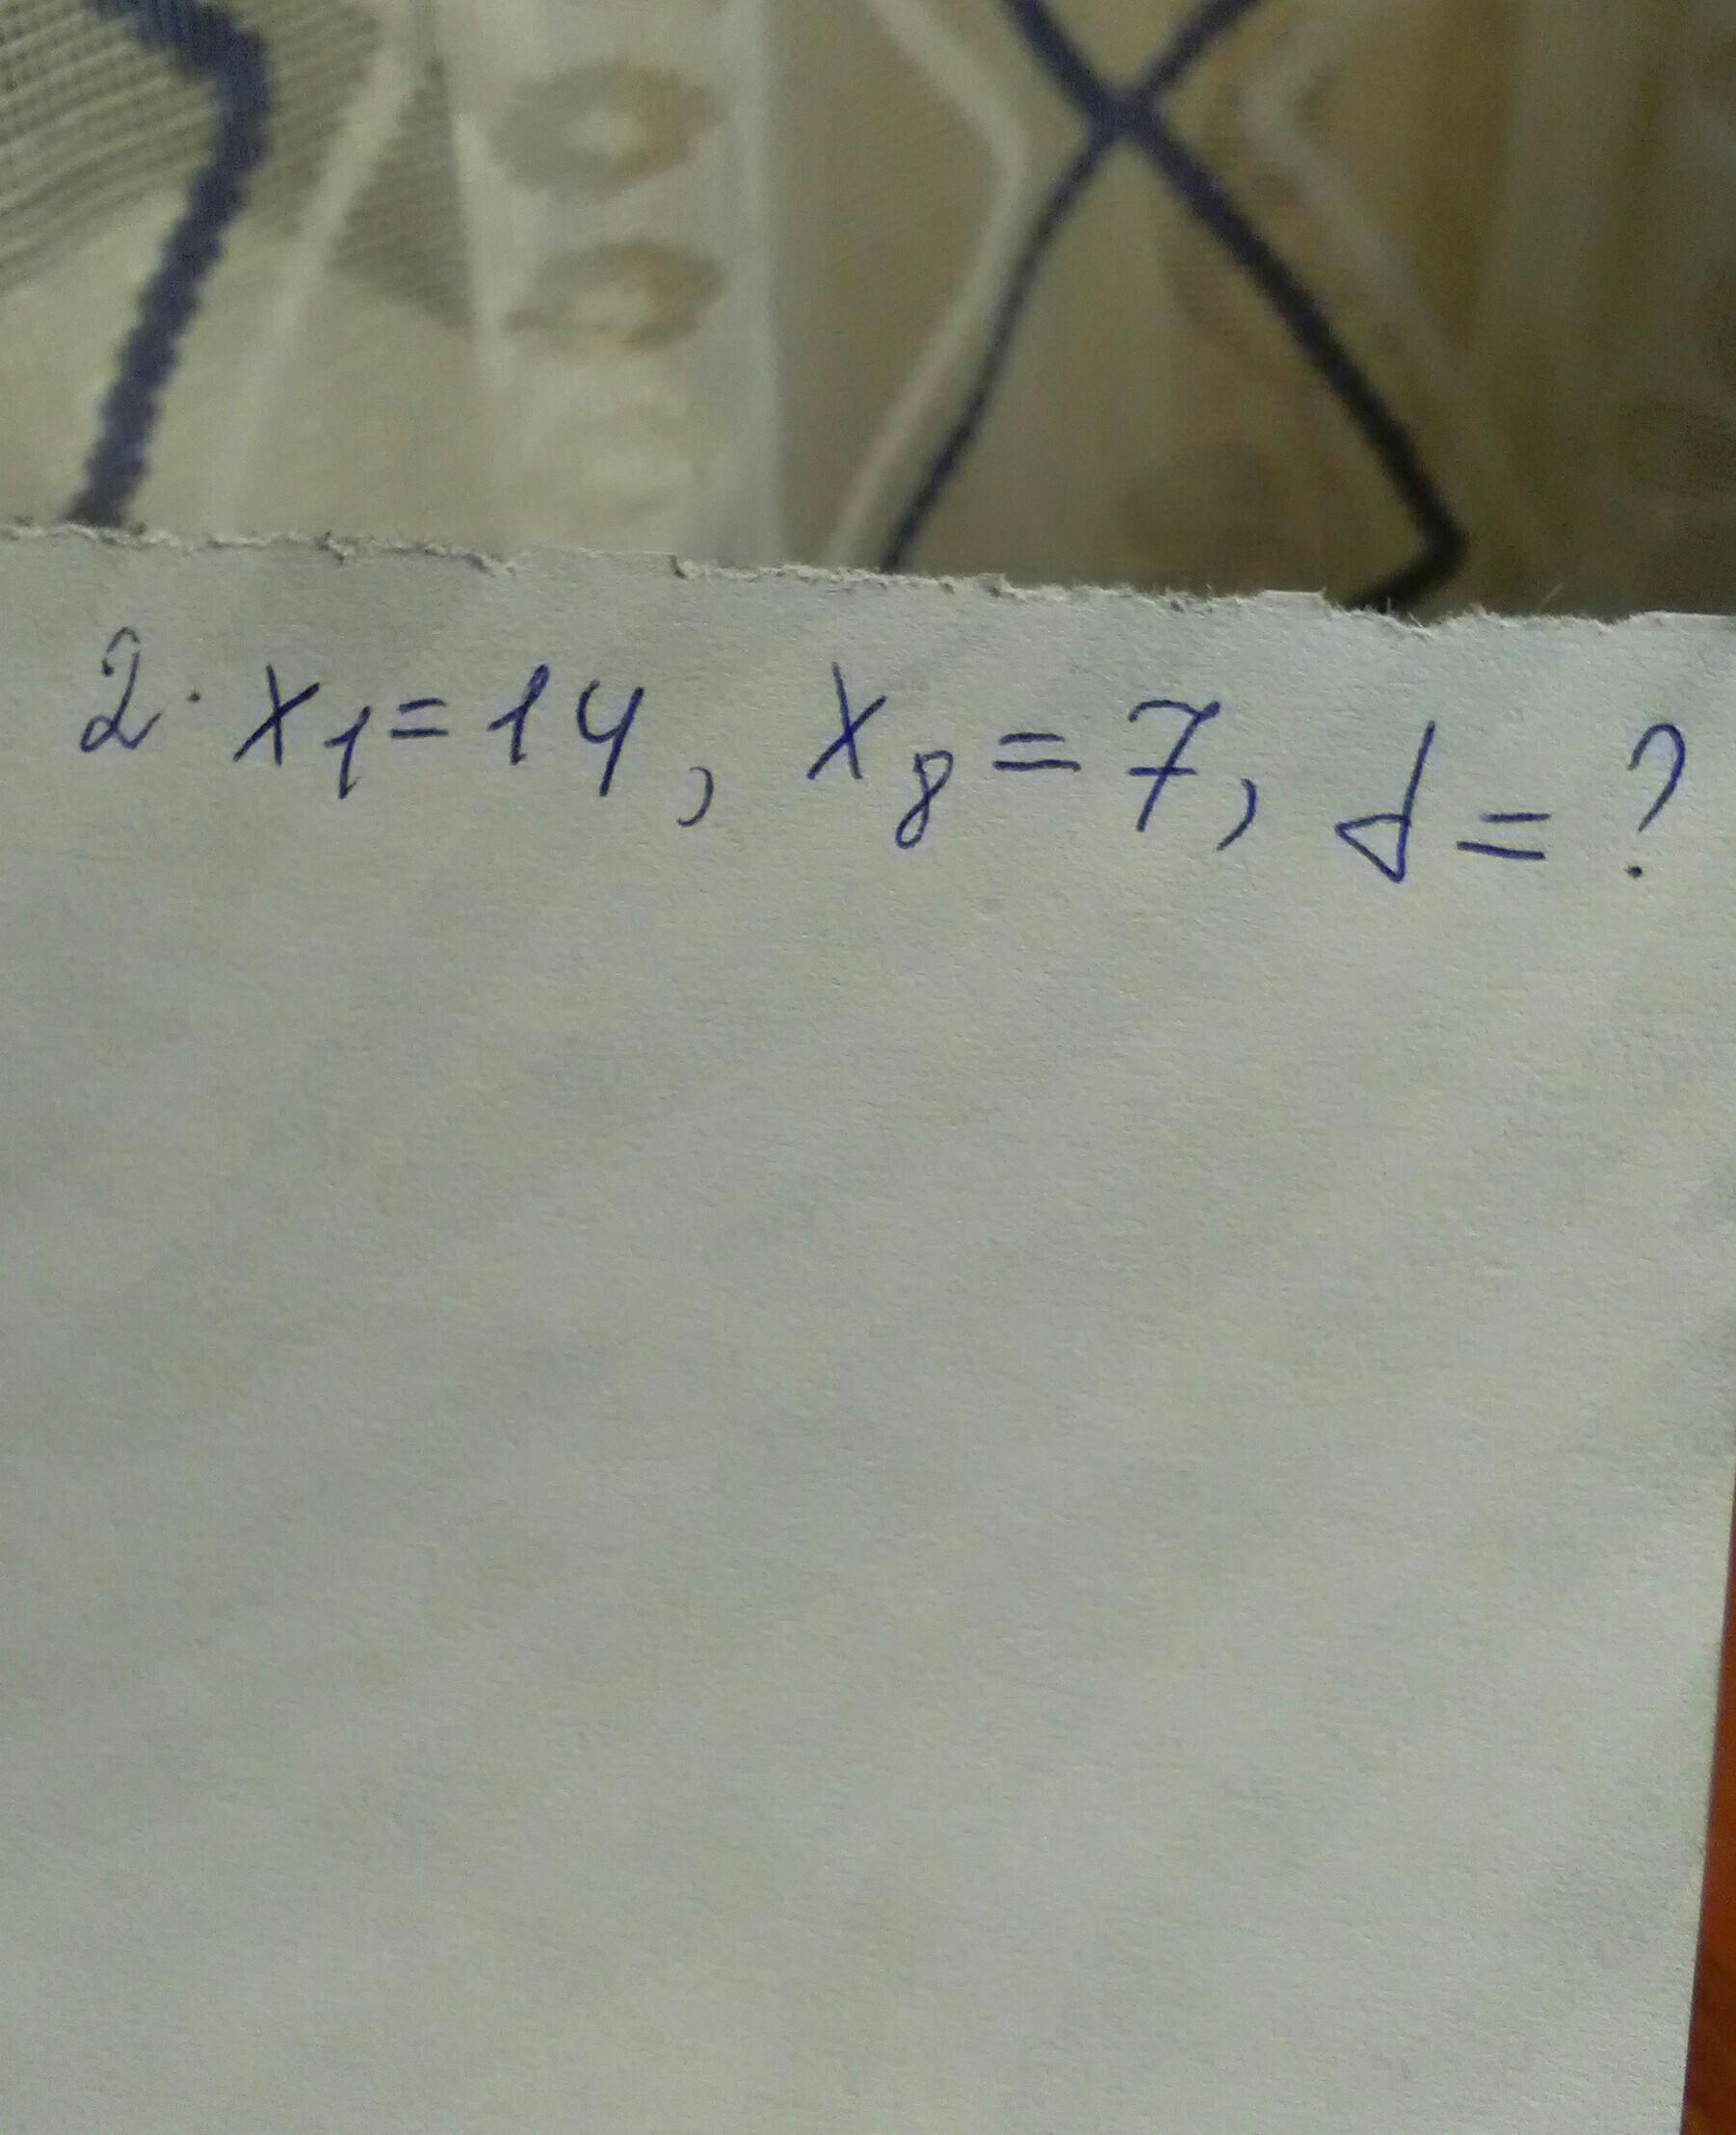 2. x₁ = 14, x₈ = 7, d = ?